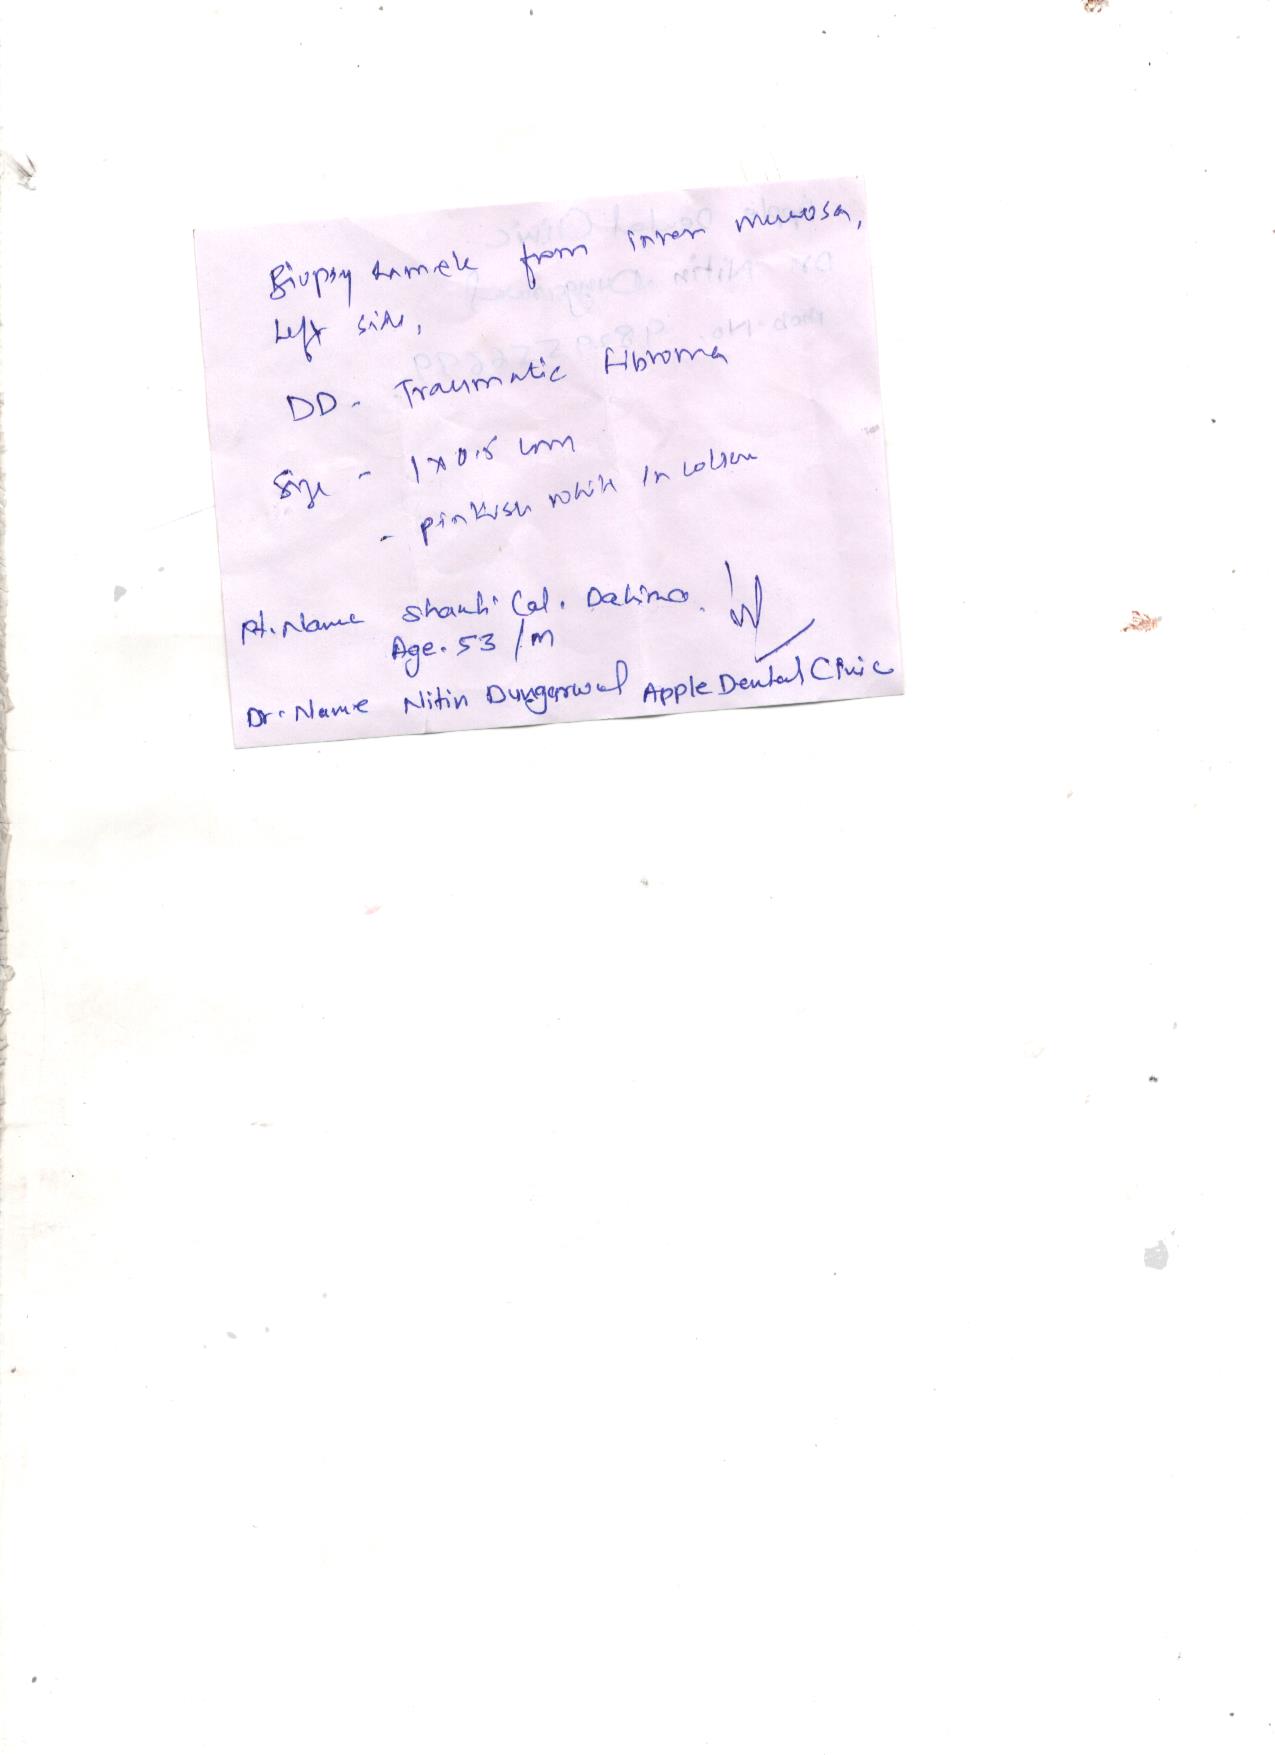 Biopsy sample from inner mucosa,
Left side,
DD - Traumatic fibroma
Size - 1x0.5 cm
- pinkish white in colour
Pt. Name Shanti Lal. Dakina.
Age. 53 /m
Dr. Name Nitin Dungarwal Apple Dental Clinic